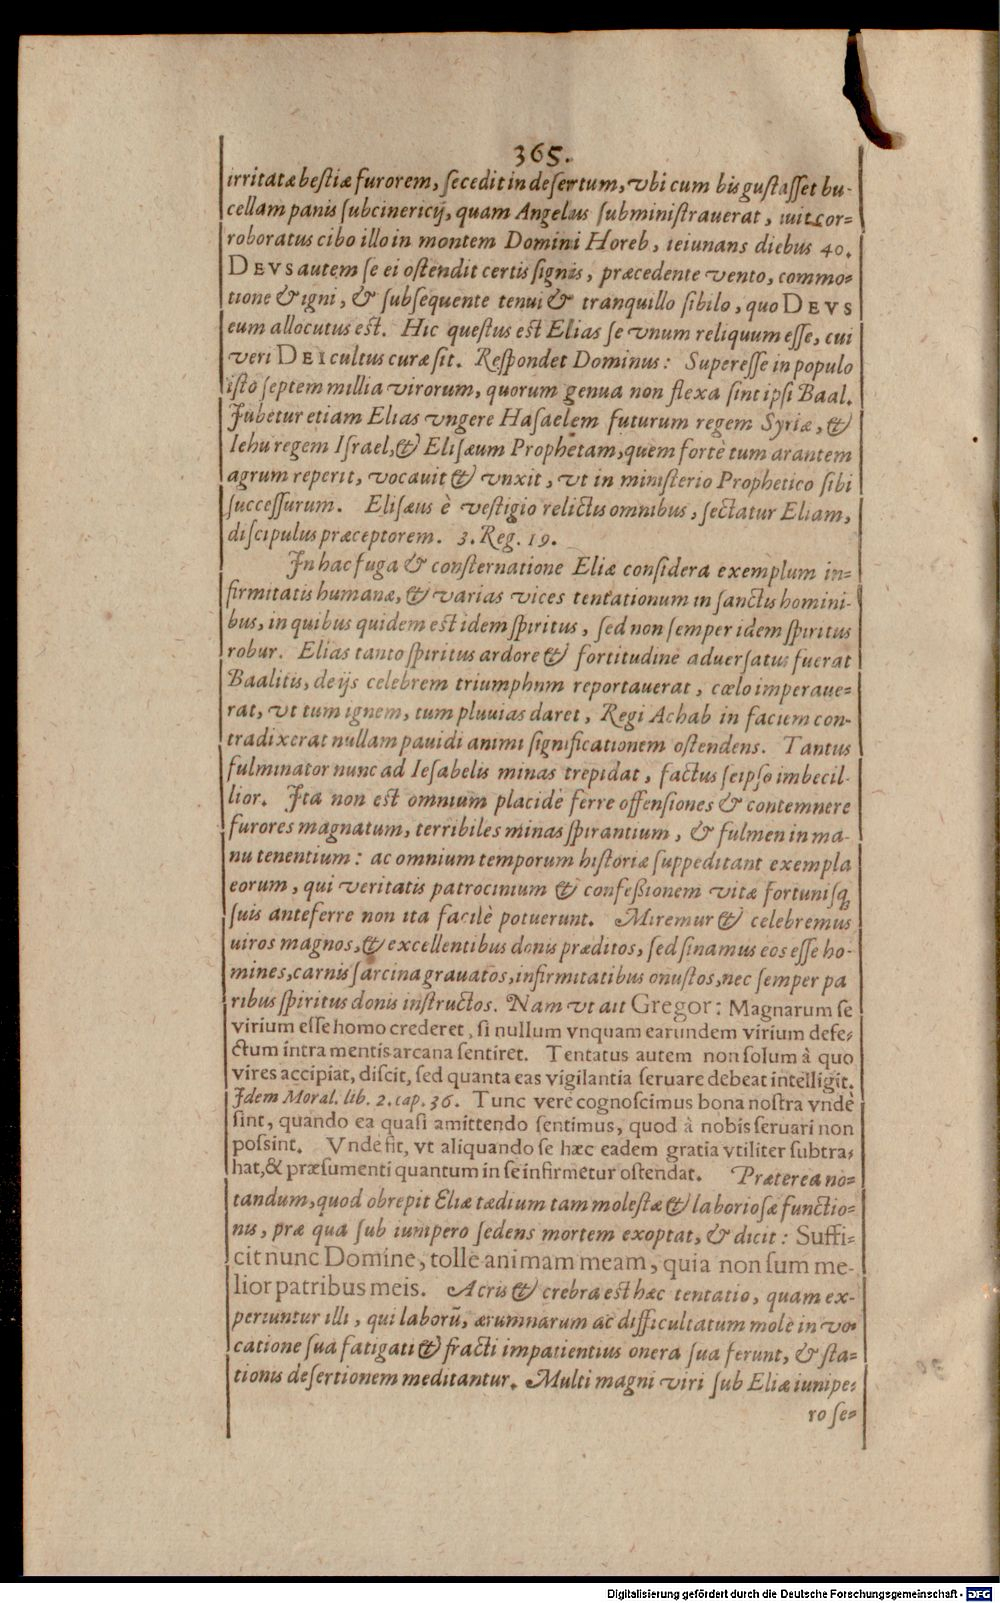 365.
irritatæ bestiæ furorem, secedit in desertum, vbi cum bis gustasset bu-
cellam panis subcinericij, quam Angelus subministrauerat, iuit cor-
roboratus cibo illo in montem Domini Horeb, ieiunans diebus 40.
DEVS autem se ei ostendit certis signis, præcedente vento, commo-
tione & igni, & subsequente tenui & tranquillo sibilo, quo DEVS
eum allocutus est. Hic questus est Elias se vnum reliquum esse, cui
veri DEI cultus curæ sit. Respondet Dominus: Superesse in populo
isto septem millia virorum, quorum genua non flexa sint ipsi Baal.
Jubetur etiam Elias vngere Hasaelem futurum regem Syriæ, &
Iehu regem Israel, & Elisæum Prophetam, quem fortè tum arantem
agrum reperit, vocauit & vnxit, vt in ministerio Prophetico sibi
successurum. Elisæus è vestigio relictis omnibus, sectatur Eliam,
discipulus præceptorem. 3. Reg. 19.
Jn hac fuga & consternatione Eliæ considera exemplum in-
firmitatis humanæ, & varias vices tentationum in sanctis homini-
bus, in quibus quidem est idem spiritus, sed non semper idem spiritus
robur. Elias tanto spiritus ardore & fortitudine aduersatus fuerat
Baalitis, de ijs celebrem triumphnm reportauerat, cœlo imperaue-
rat, vt tum ignem, tum pluuias daret, Regi Achab in faciem con-
tradixerat nullam pauidi animi significationem ostendens. Tantus
fulminator nunc ad Iesabelis minas trepidat, factus seipso imbecil-
lior. Jta non est omnium placidè ferre offensiones & contemnere
furores magnatum, terribiles minas spirantium, & fulmen in ma-
nu tenentium: ac omnium temporum historiæ suppeditant exempla
eorum, qui veritatis patrocinium & confeßionem vitæ fortunisq́;
suis anteferre non ita facilè potuerunt. Miremur & celebremus
uiros magnos, & excellentibus donis præditos, sed sinamus eos esse ho-
mines, carnis sarcina grauatos, infirmitatibus onustos, nec semper pa
ribus spiritus donis instructos. Nam vt ait Gregor: Magnarum se
virium esse homo crederet, si nullum vnquam earundem virium defe-
ctum intra mentis arcana sentiret. Tentatus autem non solum à quo
vires accipiat, discit, sed quanta eas vigilantia seruare debeat intelligit.
Jdem Moral. lib. 2. cap. 36. Tunc vere cognoscimus bona nostra vndè
sint, quando ea quasi amittendo sentimus, quod à nobis seruari non
possint. Vnde fit, vt aliquando se hæc eadem gratia vtiliter subtra-
hat, & præsumenti quantum in se infirmetur ostendat. Præterea no-
tandum, quod obrepit Eliæ tædium tam molestæ & laboriosæ functio-
nis, præ qua sub iunipero sedens mortem exoptat, & dicit: Suffi-
cit nunc Domine, tolle animam meam, quia non sum me-
lior patribus meis. Acris & crebra est hæc tentatio, quam ex-
periuntur illi, qui laborũ, ærumnarum ac difficultatum mole in vo-
catione sua fatigati & fracti impatientius onera sua ferunt, & sta-
tionis desertionem meditantur. Multi magni viri sub Eliæ iunipe-
ro se-
Digitalisierung gefördert durch die Deutsche Forschungsgemeinschaft - DFG